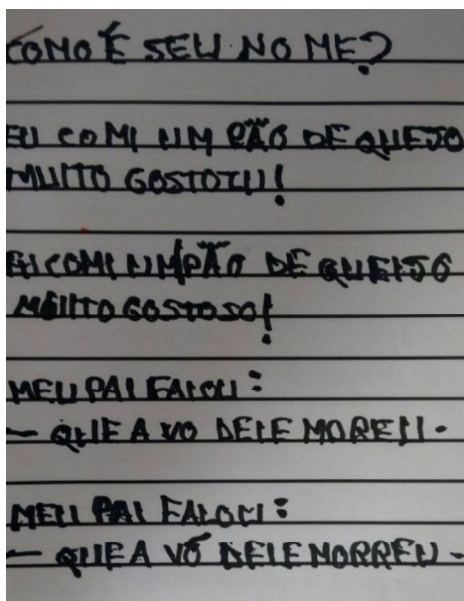 COMO É SEU NOME?
EU COMI UM PÃO DE QUEJO
MUITO GOSTOZU!
EU COMI UM PÃO DE QUEIJO
MUITO GOSTOSO!
MEU PAI FALOU:
— QUE A VO DELE MOREU.
MEU PAI FALOU:
— QUE A VÓ DELE MORREU.